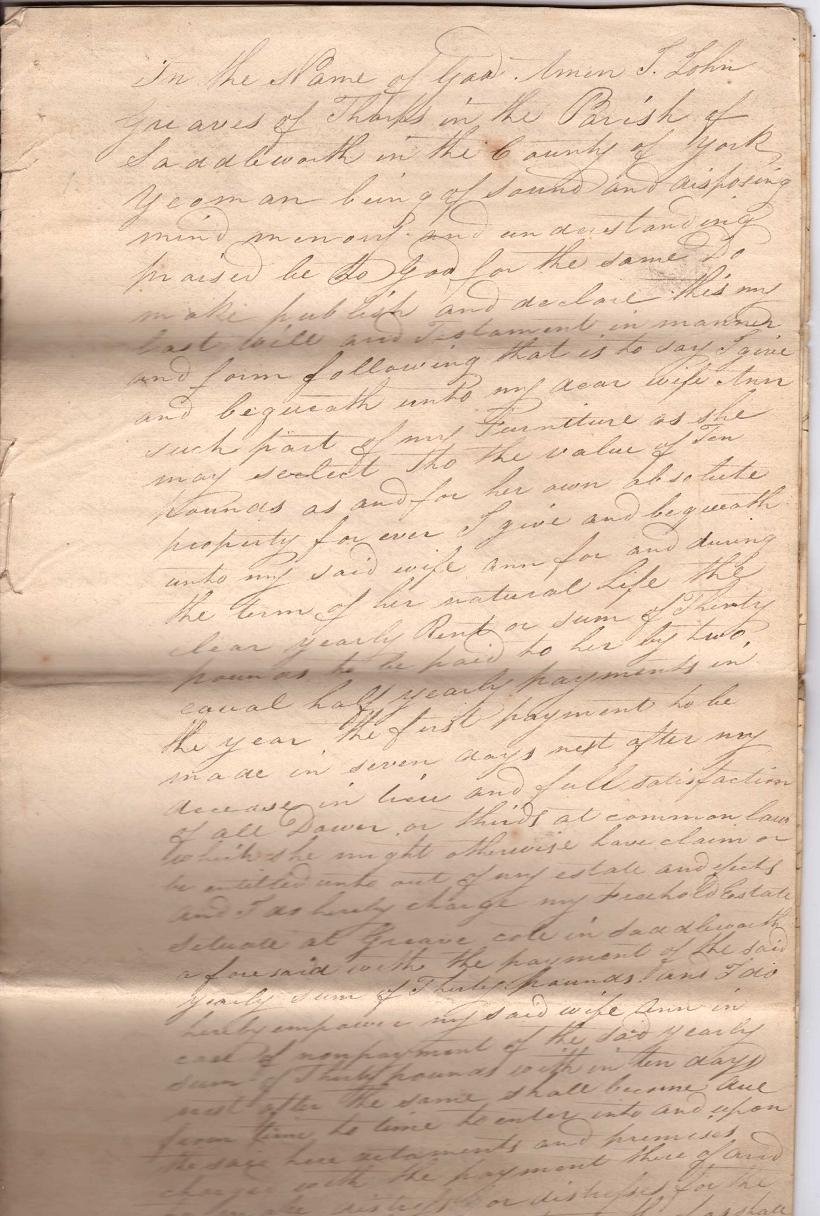 In the Name of God. Amen I. John
Greaves of Thorps in the Parish of
Saddleworth in the County of York
Yeoman being of sound and disposing
mind memory and understanding
praised be to God for the same Do
make publish and declare this my
last will and Testament in manner
and form following that is to say I give
and bequeath unto my dear wife Ann
such part of my Furniture as she
may seclect tho the value of Ten
pounds as and for her own absolute
property for ever I give and bequeath
unto my said wife ann for and during
the term of her natural life the
clear yearly Rent or sum of Thirty
pounds to be paid to her by two
equal half yearly payments in
the year the first payment to be
made in seven days next after my
decease in lieu and full satisfaction
of all Dower or thirds at common law
which she might otherwise have claim or
be entitled unto out of my estate and efects
and I do hereby charge my Freehold Estate
situate at Greave cote in Saddleworth
aforesaid with the payment of the said
yearly sum of Thirty pounds and I do
hereby empower my said wife Ann in
case of nonpayment of the said yearly
sum of Thirty pounds with in ten days
next after the same shall become due
from time to time to enter into and upon
the said here actaments and premises
charged with the payment there of and
distress or distresses for the
shall